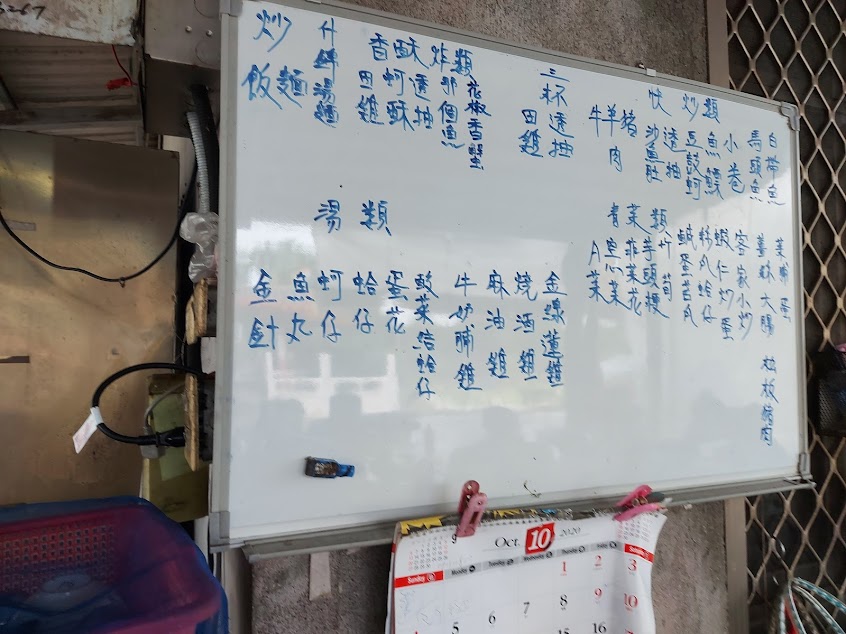 炒
飯 麵
什錦湯麵
香酥炸類
田雞
蚵酥
透抽
那個魚
花椒香蟹
三杯
田雞
透抽
快炒類
牛羊豬肉
沙魚肚
透抽
豆鼓蚵
魚鰾
小卷
馬頭魚
白帶魚
青菜類
A菜
韭菜花
芋頭梗
竹筍
鹹蛋苦瓜
炒丸蛤仔
蝦仁炒蛋
客家小炒
薑絲大腸
菜脯蛋
松板豬肉
湯類
金針
魚丸
蚵仔
蛤仔
蛋花
酸菜結蛤仔
牛奶脯雞
麻油雞
燒酒雞
金線蓮雞
Oct. 10 2020
Sunday Monday Tuesday Wednesday Thursday Friday Saturday
1 2 3
5 6 7 8 9 10